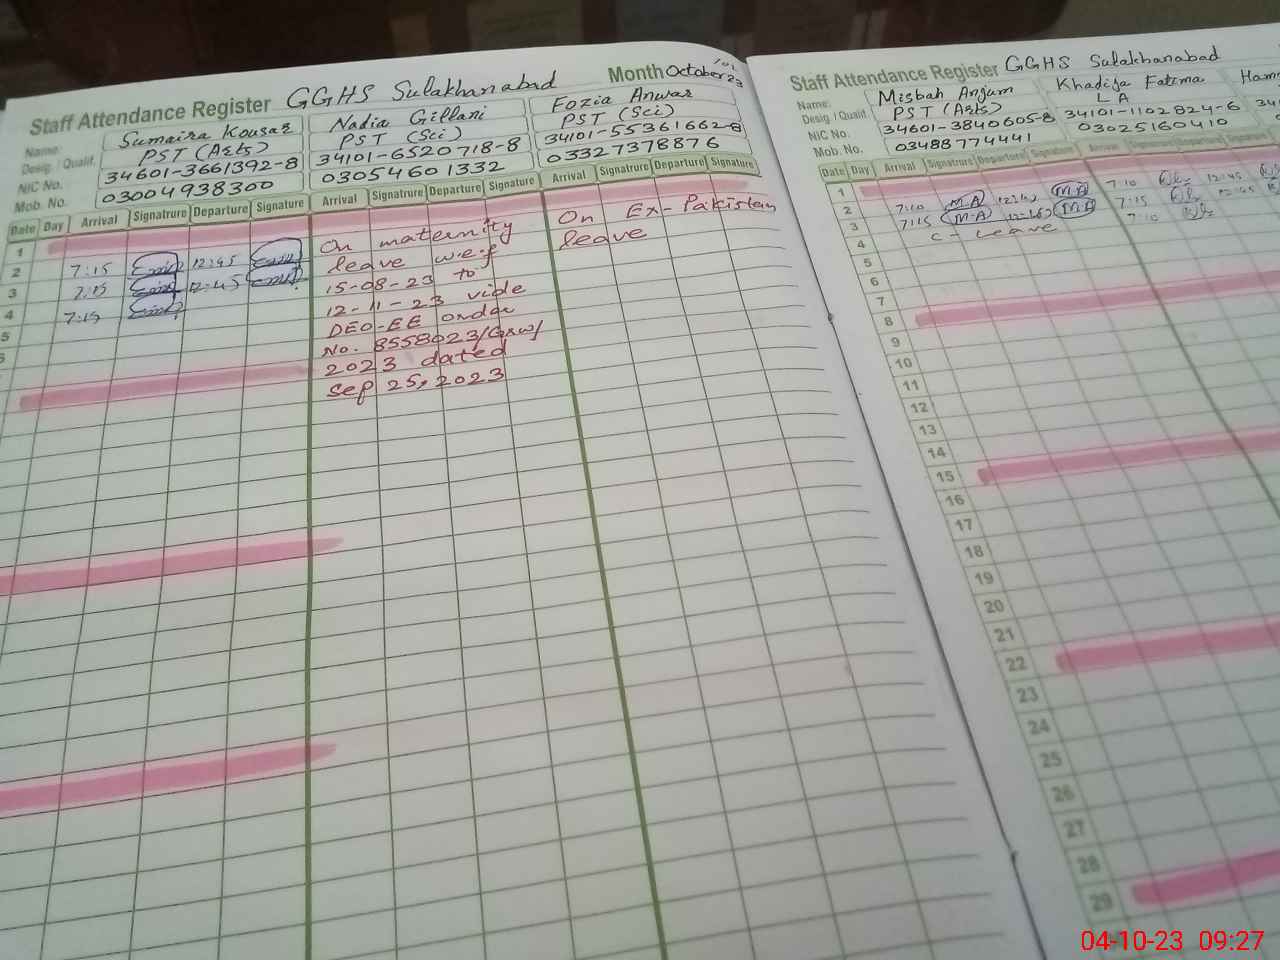 Staff Attendance Register GGHS Sulakhanabad Month October 23
Name: Sumaira Kousar Nadia Gillani Fozia Anwar
Desig. / Qualif. PST (Arts) PST (Sci) PST (Sci)
NIC No. 34601-3661392-8 34101-6520718-8 34101-55361662-8
Mob. No. 03004938300 03054601332 03327378876
Date Day Arrival Signatrure Departure Signature Arrival Signatrure Departure Signature Arrival Signatrure Departure Signature
1
2 7:15 12:45
3 7:15 12:45
4 7:15
5
6
On maternity
leave w.e.f
15-08-23 to
12-11-23 vide
DEO-EE order
No. 8558023/GRW/
2023 dated
Sep 25, 2023
On Ex-Pakistan
leave
Staff Attendance Register GGHS Sulakhanabad
Name: Misbah Anjum Khadija Fatima
Desig. / Qualif. PST (Arts) LA
NIC No. 34601-3840605-8 34101-1102824-6
Mob. No. 03488774441 03025160410
Date Day Arrival Signatrure Departure Signature Arrival Signatrure Departure Signature
1
2 7:10 M.A 12:45 M.A 7:10 12:45
3 7:15 M.A 12:45 M.A 7:15 12:45
4 C-Leave 7:10
5
6
7
8
9
10
11
12
13
14
15
16
17
18
19
20
21
22
23
24
25
26
27
28
29
04-10-23 09:27